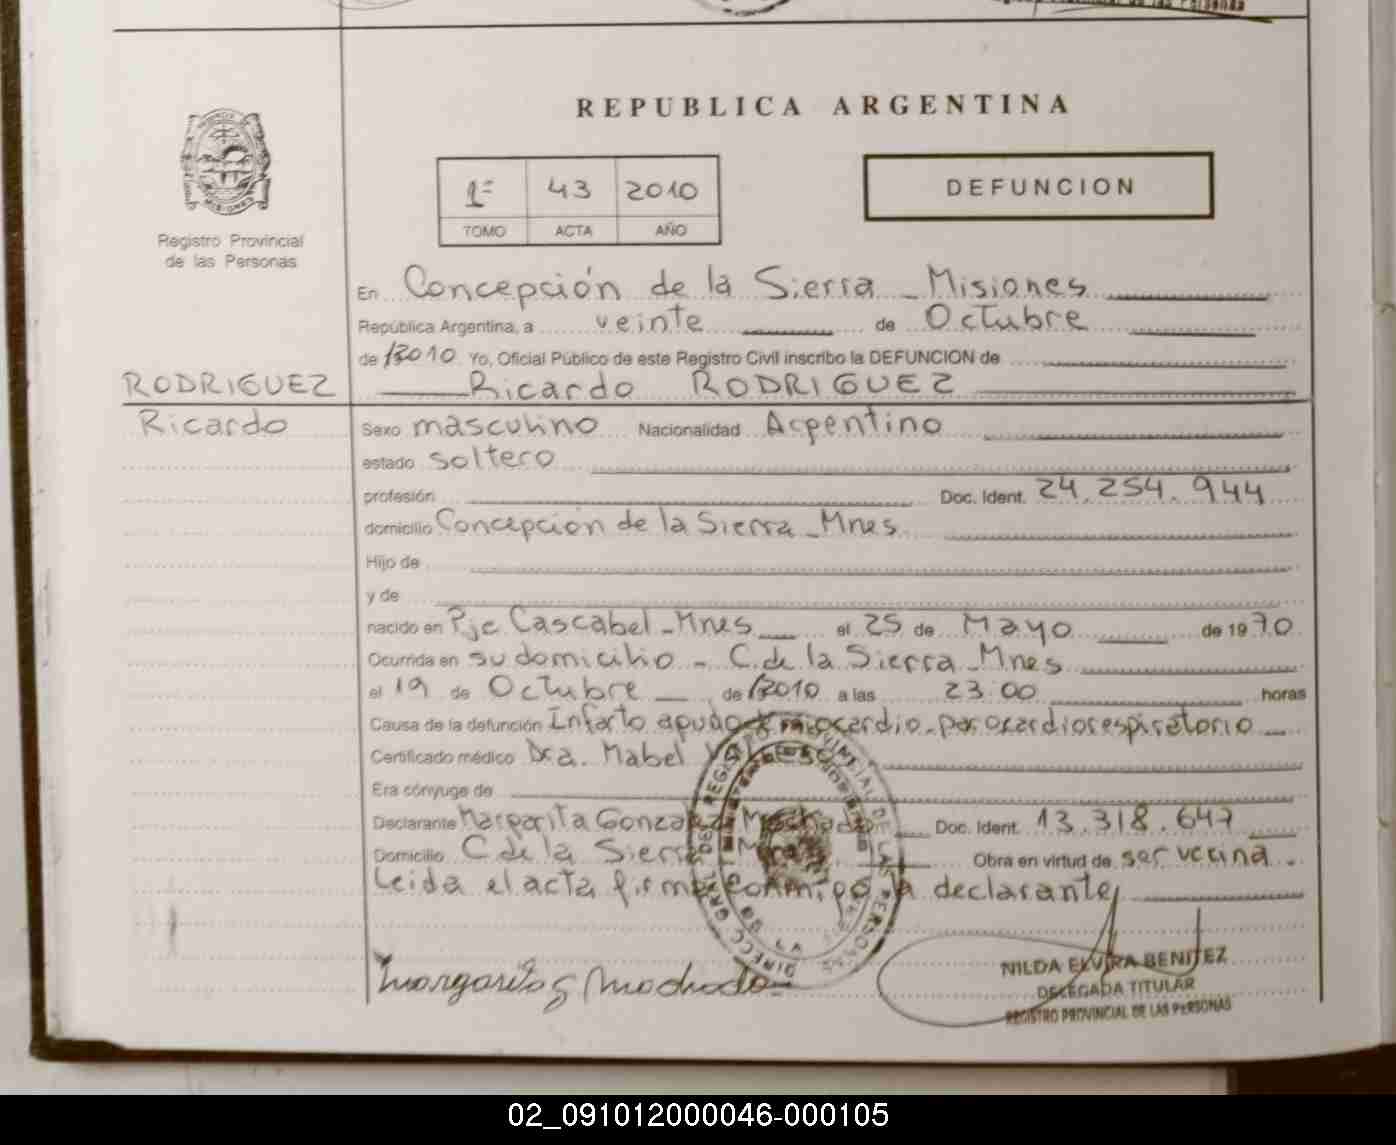 REPUBLICA ARGENTINA
1º 43 2010
TOMO ACTA AÑO
DEFUNCION
Registro Provincial
de las Personas
En Concepción de la Sierra - Misiones
República Argentina, a veinte de Octubre
de 2010 Yo, Oficial Público de este Registro Civil inscribo la DEFUNCION de
RODRIGUEZ Ricardo RODRIGUEZ
Ricardo Sexo masculino Nacionalidad Argentino
estado soltero
profesión Doc. Ident. 24.254.944
domicilio Concepción de la Sierra - Mnes
Hijo de
y de
nacido en Pje Cascabel - Mnes el 25 de Mayo de 1970
Ocurrida en su domicilio - C. de la Sierra - Mnes
el 19 de Octubre de 2010 a las 23:00 horas
Causa de la defunción Infarto agudo miocardio - paro cardiorespiratorio
Certificado médico Dra. Mabel
Era cónyuge de
Declarante Margarita Gonzalez Machado Doc. Ident. 13.318.647
Domicilio C de la Sierra Mnes Obra en virtud de ser vecina.
Leida el acta firma conmigo la declarante
Margarita G Machado
NILDA ELVIRA BENITEZ
DELEGADA TITULAR
REGISTRO PROVINCIAL DE LAS PERSONAS
02_091012000046-000105